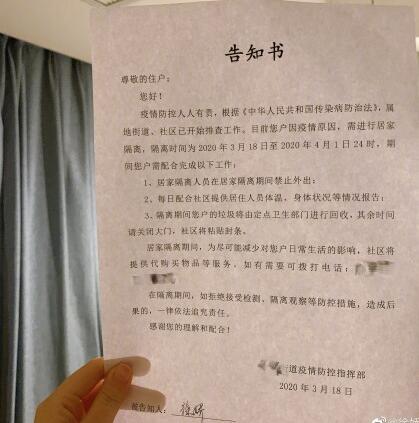 告知书
尊敬的住户：
您好！
疫情防控人人有责，根据《中华人民共和国传染病防治法》，属
地街道、社区已开始排查工作。目前您户因疫情原因，需进行居家
隔离，隔离时间为 2020 年 3 月 18 日至 2020 年 4 月 1 日 24 时，期
间您户需配合完成以下工作：
1、居家隔离人员在居家隔离期间禁止外出；
2、每日配合社区提供居住人员体温，身体状况等情况报告；
3、隔离期间您户的垃圾将由定点卫生部门进行回收，其余时间
请关闭大门，社区将粘贴封条。
居家隔离期间，为尽可能减少对您户日常生活的影响，社区将
提供代购买物品等服务。如有需要可拨打电话：
在隔离期间，如拒绝接受检测、隔离观察等防控措施，造成后
果的，一律依法追究责任。
感谢您的理解和配合！
道疫情防控指挥部
2020 年 3 月 18 日
被告知人：